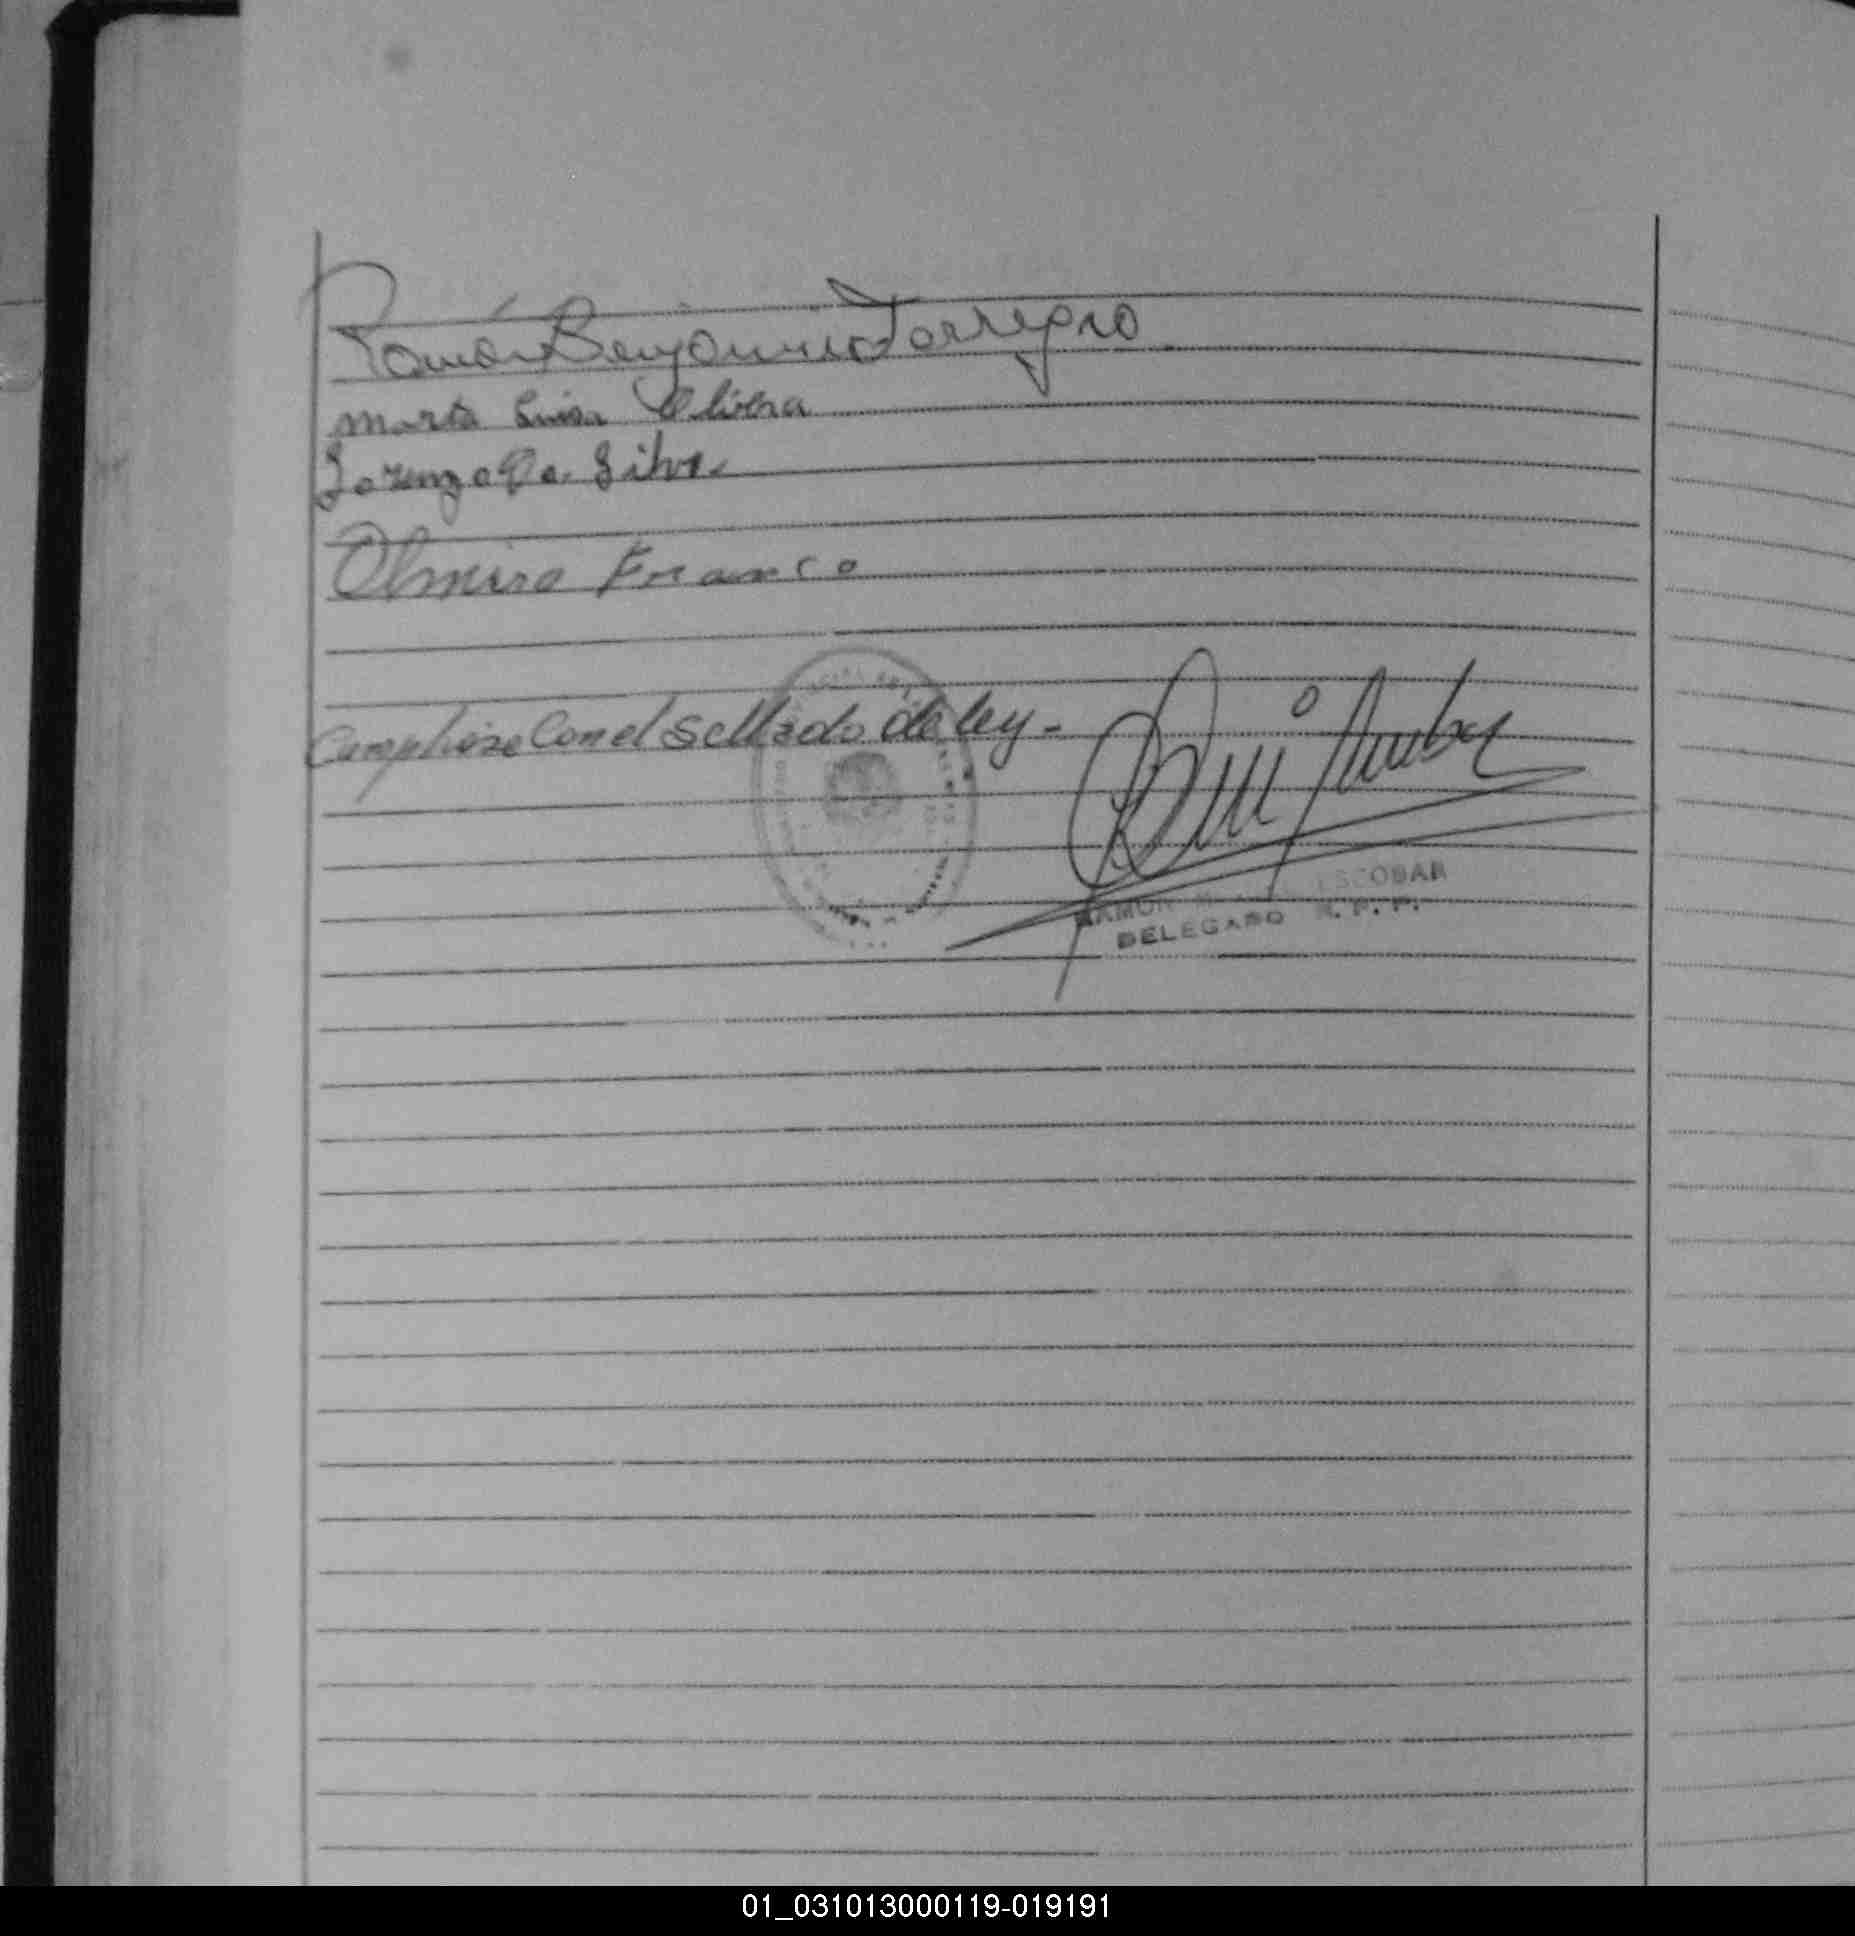 Ramón Benjamin Torregro
Marta Luisa Olivera
Lorenzo Da Silva
Olmiro Franco
Cumpliose Con el Sellado de ley -
RAMON ESCOBAR
DELEGADO R. P. P.
01_031013000119-019191